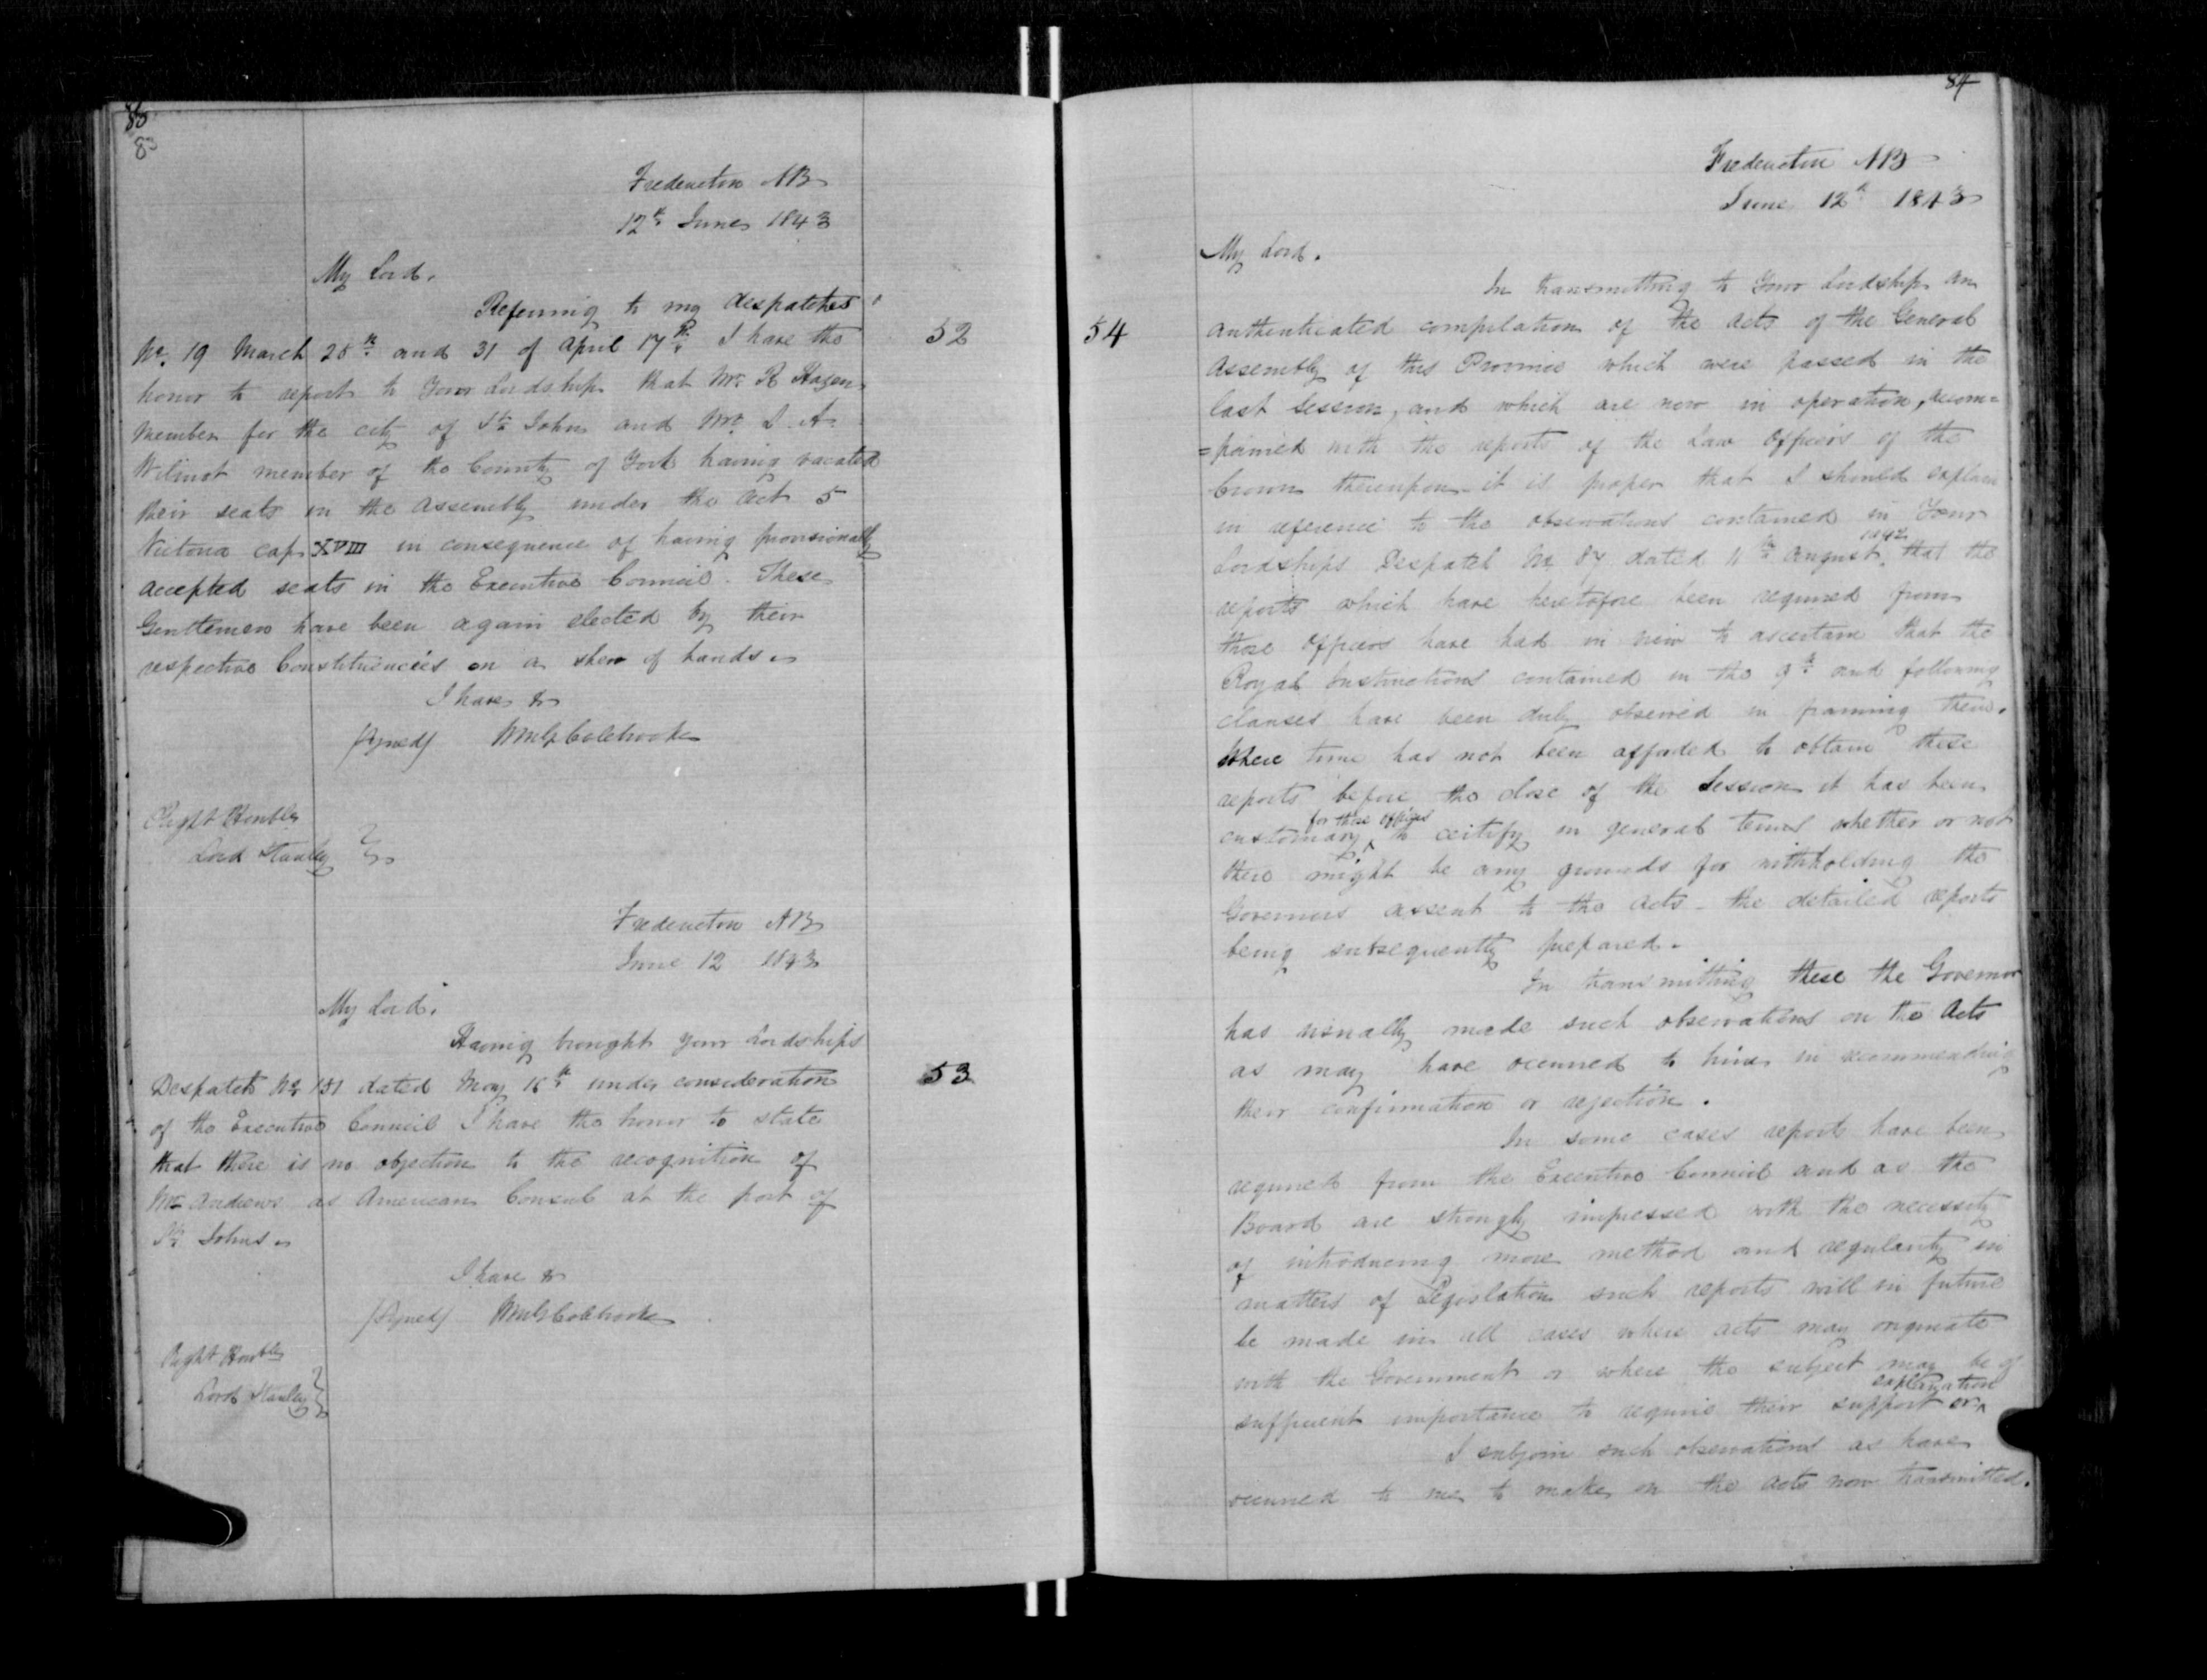 83
83
Fredericton NB
12th June 1843
My Lord.
Referring to my despatches
No. 19 March 28th and 31 of April 17th I have the
52
honor to report to Your Lordship that Mr. R Hazen
Member for the city of St. John and Mr. L. A.
Wilmot member of the County of York having vacated
their seats in the Assembly under the Act 5
Victoria cap XVIII in consequence of having provisionally
accepted seats in the Executive Council. These
Gentlemen have been again elected by their
respective Constituencies on a shew of hands.
I have &
(Signed) WMG Colebrooke
Right Honble
Lord Stanley
Fredericton NB
June 12 1843
My Lord.
Having brought your Lordships
Despatch No 151 dated May 18th under consideration
53
of the Executive Council I have the honor to state
that there is no objection to the recognition of
Mr Andrews as American Consul at the port of
St. Johns.
I have &
(Signed) WMG Colebrooke
Right Honble
Lord Stanley
84
Fredericton NB
June 12th 1843
My Lord.
In transmitting to Your Lordship an
54
authenticated compilation of the Acts of the General
Assembly of this Province which were passed in the
last Session, and which are now in operation, accom=
=panied with the reports of the Law Officers of the
Crown thereupon - it is proper that I should explain
in reference to the observations contained in Your
Lordships Despatch No 87 dated 11th August 1842 that the
reports which have heretofore been required from
those Officers have had in view to ascertain that the
Royal Instructions contained in the 9th and following
clauses have been duly observed in framing them.
Where time has not been afforded to obtain these
reports before the close of the Session it has been
customary for those officers to certify in general terms whether or not
there might be any grounds for withholding the
Governors assent to the Acts - the detailed reports
being subsequently prepared.
In transmitting these the Governor
has usually made such observations on the Acts
as may have occurred to him in recommending
their confirmation or rejection.
In some cases reports have been
required from the Executive Council and as the
Board are strongly impressed with the necessity
of introducing more method and regularity in
matters of Legislation such reports will in future
be made in all cases where acts may originate
with the Government or where the subject may be of
sufficient importance to require their support or explanation
I subjoin such observations as have
occurred to me to make on the acts now transmitted.